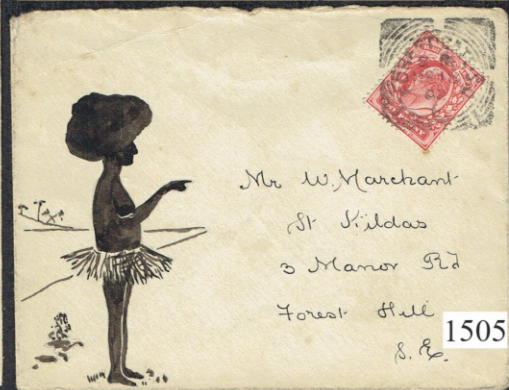 Mr W. Marchant
St Kildas
3 Manor Rd
Forest Hill
S.E.
1505